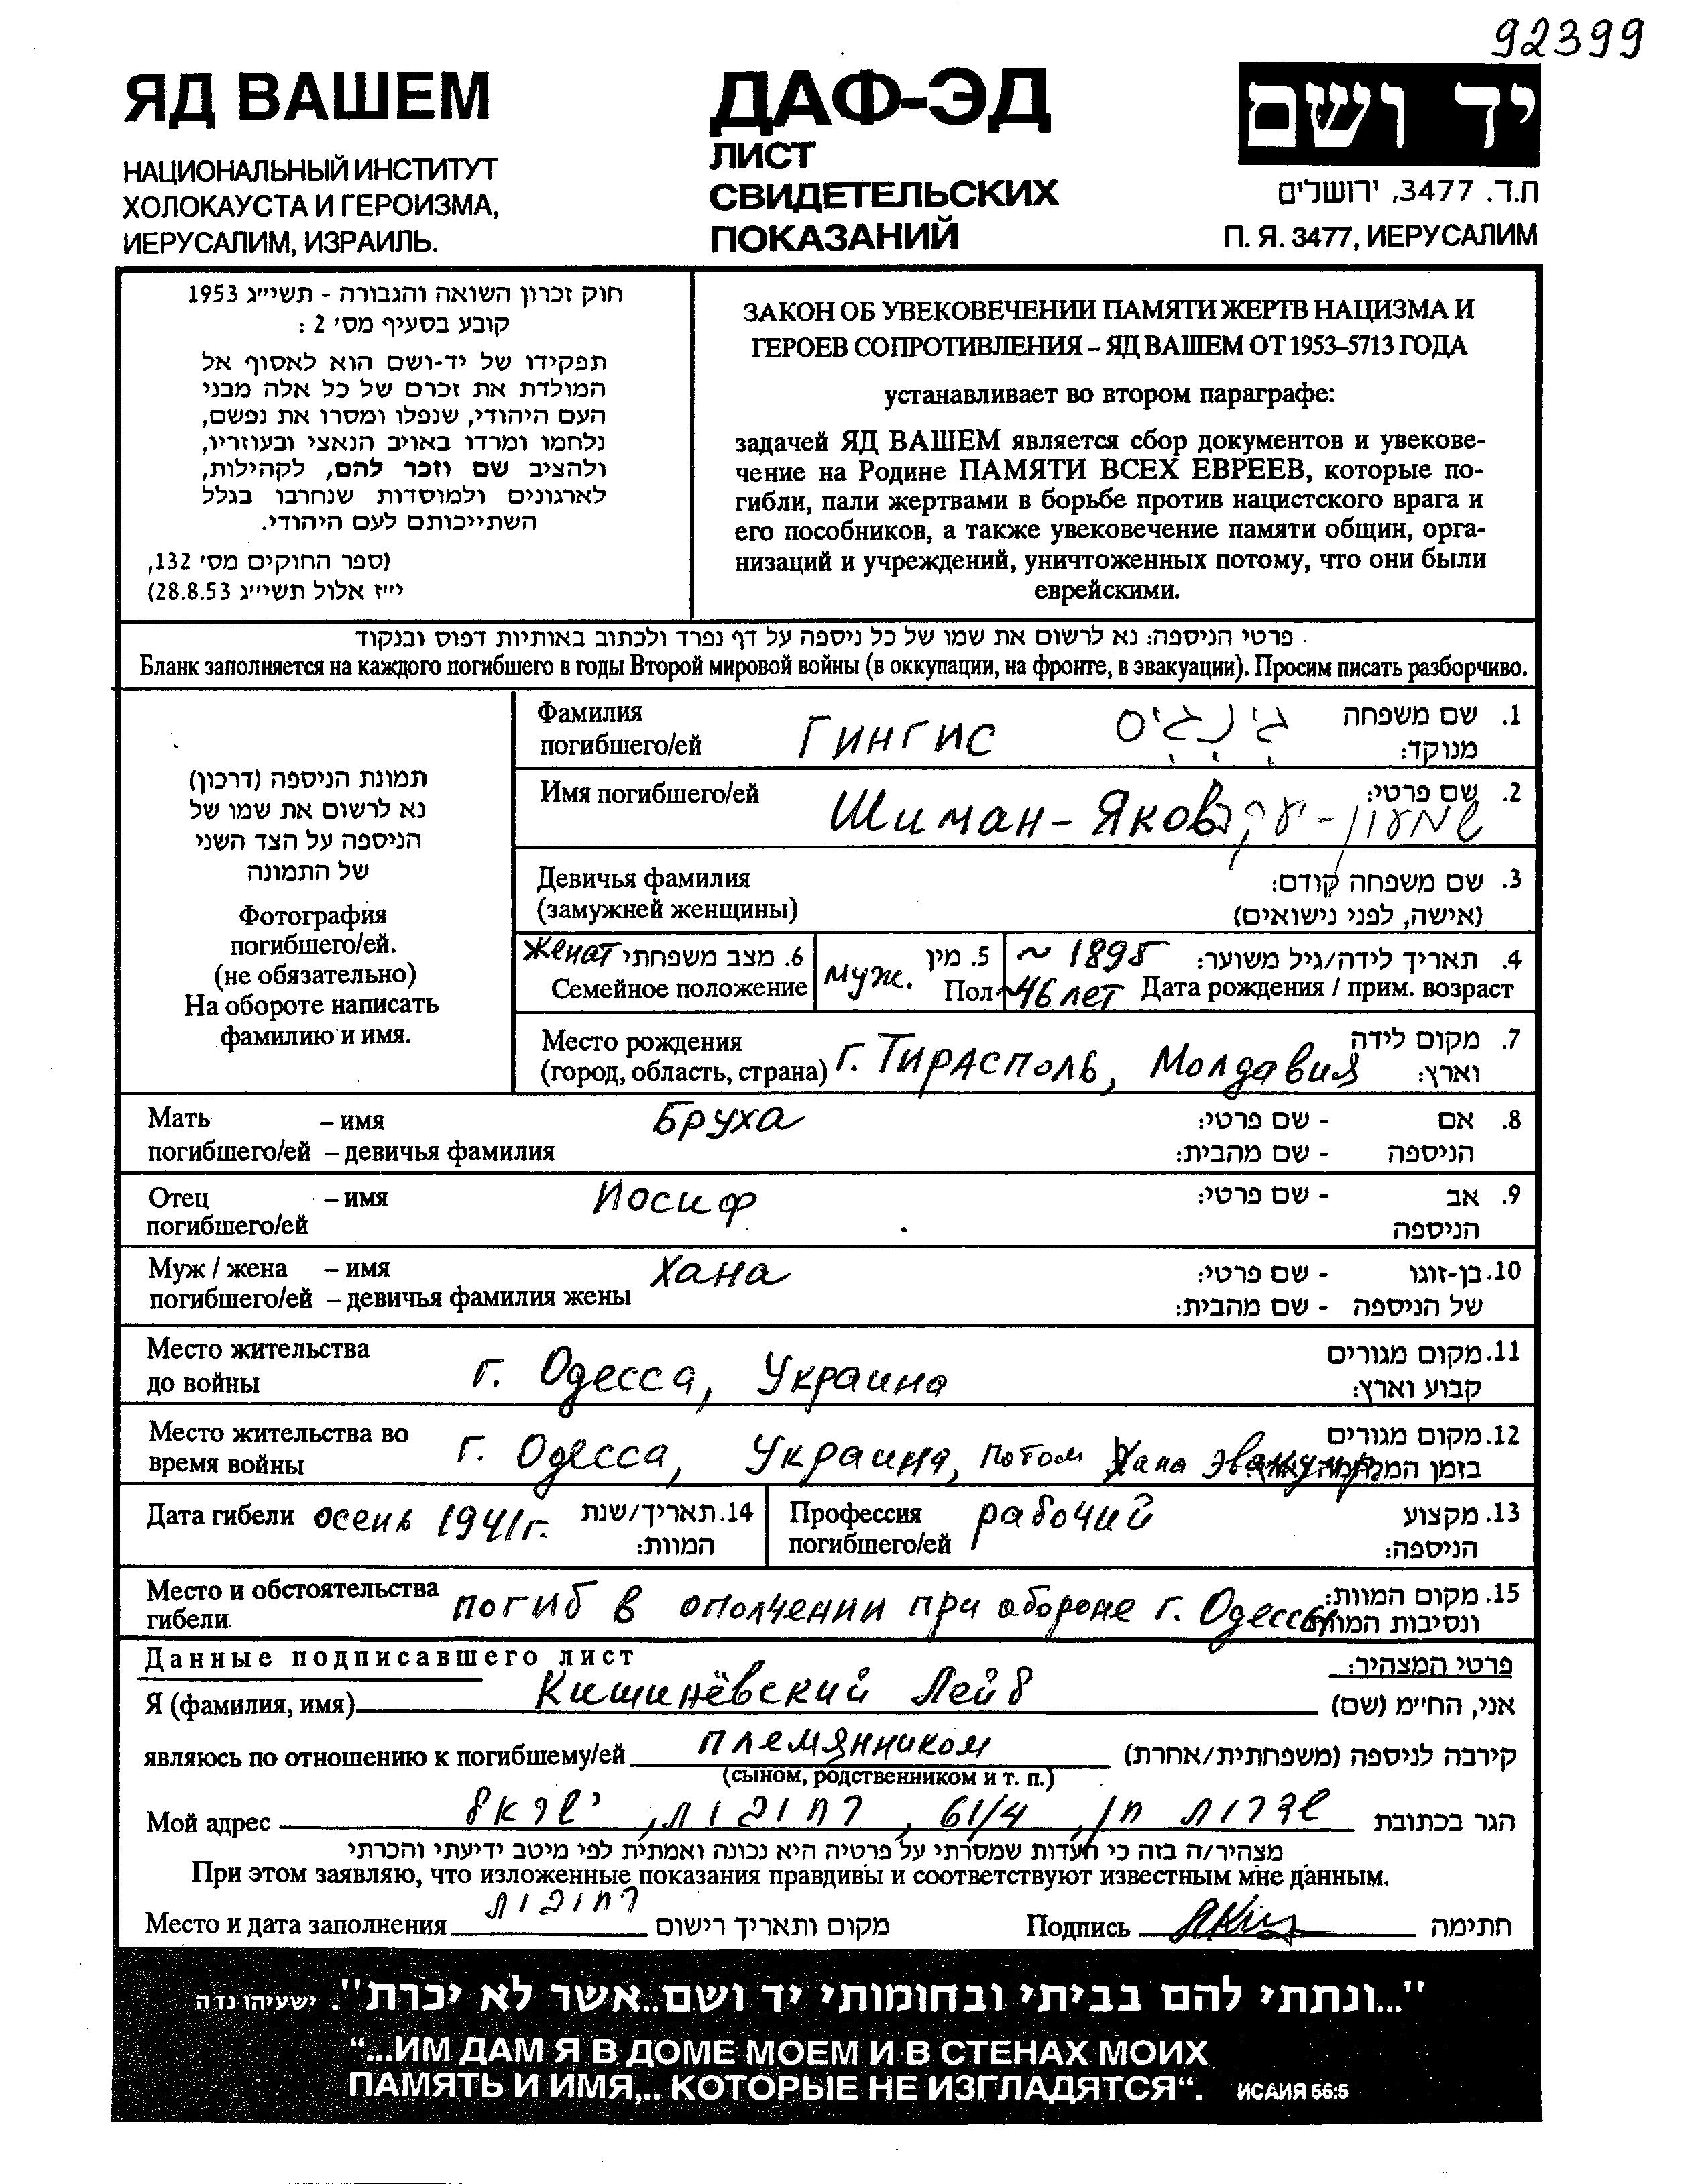 92399
ЯД ВАШЕМ
НАЦИОНАЛЬНЫЙ ИНСТИТУТ
ХОЛОКАУСТА И ГЕРОИЗМА,
ИЕРУСАЛИМ, ИЗРАИЛЬ.
ДАФ-ЭД
ЛИСТ
СВИДЕТЕЛЬСКИХ
ПОКАЗАНИЙ
יד ושם
ת.ד. 3477, ירושלים
П. Я. 3477, ИЕРУСАЛИМ
חוק זכרון השואה והגבורה - תשי״ג 1953
קובע בסעיף מס׳ 2 :
תפקידו של יד-ושם הוא לאסוף אל
המולדת את זכרם של כל אלה מבני
העם היהודי, שנפלו ומסרו את נפשם,
נלחמו ומרדו באויב הנאצי ובעוזריו,
ולהציב שם וזכר להם, לקהילות,
לארגונים ולמוסדות שנחרבו בגלל
השתייכותם לעם היהודי.
(ספר החוקים מס׳ 132,
י״ז אלול תשי״ג 28.8.53)
ЗАКОН ОБ УВЕКОВЕЧЕНИИ ПАМЯТИ ЖЕРТВ НАЦИЗМА И
ГЕРОЕВ СОПРОТИВЛЕНИЯ – ЯД ВАШЕМ ОТ 1953–5713 ГОДА
устанавливает во втором параграфе:
задачей ЯД ВАШЕМ является сбор документов и увекове-
чение на Родине ПАМЯТИ ВСЕХ ЕВРЕЕВ, которые по-
гибли, пали жертвами в борьбе против нацистского врага и
его пособников, а также увековечение памяти общин, орга-
низаций и учреждений, уничтоженных потому, что они были
еврейскими.
פרטי הניספה: נא לרשום את שמו של כל ניספה על דף נפרד ולכתוב באותיות דפוס ובנקוד
Бланк заполняется на каждого погибшего в годы Второй мировой войны (в оккупации, на фронте, в эвакуации). Просим писать разборчиво.
תמונת הניספה (דרכון)
נא לרשום את שמו של
הניספה על הצד השני
של התמונה
Фотография
погибшего/ей.
(не обязательно)
На обороте написать
фамилию и имя.
Фамилия погибшего/ей Гингис גינגיס 1. שם משפחה מנוקד:
Имя погибшего/ей Шиман-Яков שמעון-יעקב 2. שם פרטי:
Девичья фамилия 3. שם משפחה קודם:
(замужней женщины) (אישה, לפני נישואים)
женат 6. מצב משפחתי муж. 5. מין ~ 1895 4. תאריך לידה/גיל משוער:
Семейное положение Пол ~46 лет Дата рождения / прим. возраст
Место рождения 7. מקום לידה
(город, область, страна) г. Тирасполь, Молдавия וארץ:
Мать – имя Бруха 8. אם - שם פרטי:
погибшего/ей – девичья фамилия הניספה - שם מהבית:
Отец – имя Иосиф 9. אב - שם פרטי:
погибшего/ей הניספה
Муж / жена – имя Хана 10. בן-זוגו - שם פרטי:
погибшего/ей – девичья фамилия жены של הניספה - שם מהבית:
Место жительства 11. מקום מגורים
до войны г. Одесса, Украина קבוע וארץ:
Место жительства во 12. מקום מגורים
время войны г. Одесса, Украина, потом Хана эвакуир. בזמן המלחמה
Дата гибели осень 1941г. 14. תאריך/שנת המוות: Профессия погибшего/ей рабочий 13. מקצוע הניספה:
Место и обстоятельства 15. מקום המוות:
гибели погиб в ополчении при обороне г. Одессы ונסיבות המוות
Данные подписавшего лист פרטי המצהיר:
Я (фамилия, имя) Кишинёвский Лейб אני, הח״מ (שם)
являюсь по отношению к погибшему/ей племянником קירבה לניספה (משפחתית/אחרת)
(сыном, родственником и т. п.)
Мой адрес שדרות חן, 61/4, רחובות, ישראל הגר בכתובת
מצהיר/ה בזה כי העדות שמסרתי על פרטיה היא נכונה ואמתית לפי מיטב ידיעתי והכרתי
При этом заявляю, что изложенные показания правдивы и соответствуют известным мне данным.
Место и дата заполнения רחובות מקום ותאריך רישום Подпись חתימה
"...ונתתי להם בביתי ובחומותי יד ושם..אשר לא יכרת". ישעיהו נו ה
“...ИМ ДАМ Я В ДОМЕ МОЕМ И В СТЕНАХ МОИХ
ПАМЯТЬ И ИМЯ,.. КОТОРЫЕ НЕ ИЗГЛАДЯТСЯ“. ИСАИЯ 56:5